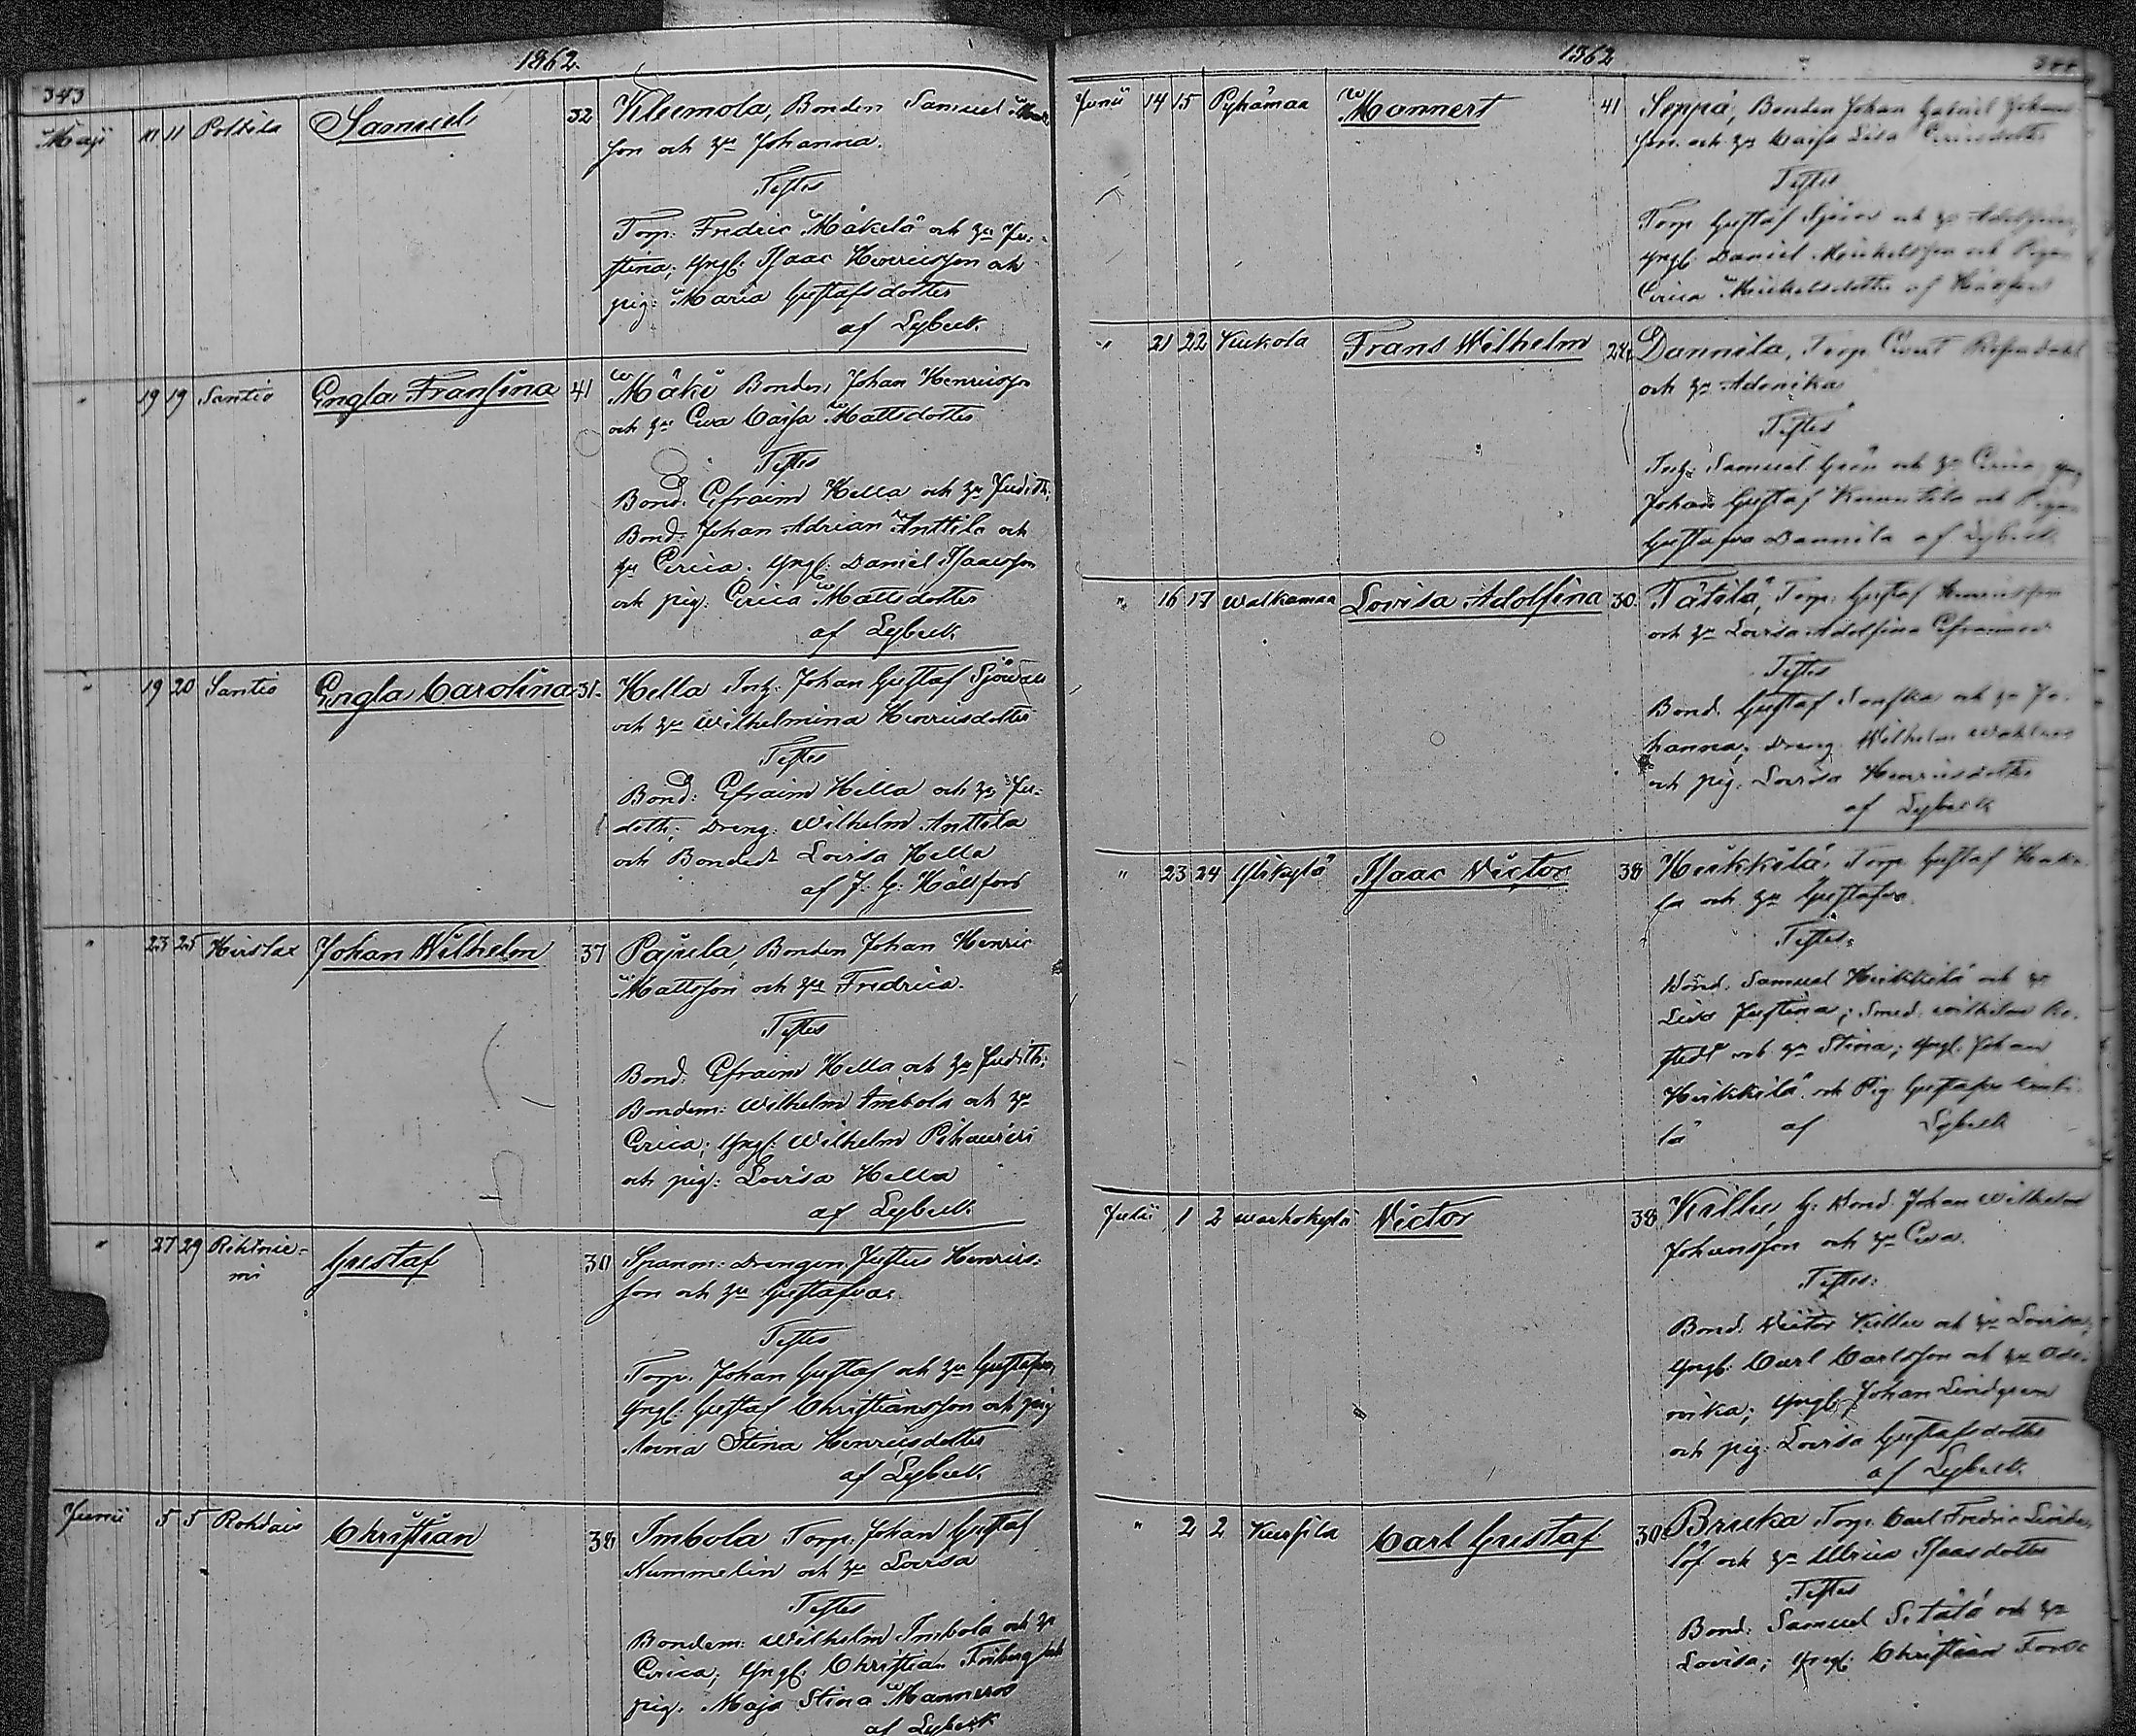 1862
343
Maji 11 11 Polttila Samuel 32 Kleemola, Bonden Samuel
son och h:u Johanna.
Testes
Torp: Fredric Mäkelä och h:u Ju-
stina; Yngl: Isaac Henricsson och
pig: Maria Gustafsdotter
af Lybeck.
" 19 19 Santio Engla Fransina 41 Mäki Bonden Johan Henricsson
och h:u Eva Caisa Mattsdotter
Testes
Bond: Efraim Hella och h:u Judith;
Bond: Johan Adrian Anttila och
h:u Erica. Yngl: Daniel Isaacsson
och pig: Erica Mattsdotter
af Lybeck.
" 19 20 Santio Engla Carolina 31 Hella Inh: Johan Gustaf
och h:u Wilhelmina Henricsdotter
Testes
Bond: Efraim Hella och h:u Ju-
dith; Dreng: Wilhelm Anttila
och Bonded: Lovisa Hella
af J: G: Hällfors
" 23 25 Hirslax Johan Wilhelm 37 Pajula, Bonden Johan Henric
Mattsson och h:u Fredrica.
Testes
Bond: Efraim Hella och h:u Judith;
Bondem: Wilhelm Imbola och h:u
Erica; Yngl: Wilhelm
och pig: Lovisa Hella
af Lybeck.
" 27 29 Rihtnie-
mi Gustaf 30 Spanm: Drengen Justus Henrics-
son och h:u Gustafva.
Testes
Torp. Johan Gustaf och h:u Gustafva,
Yngl: Gustaf Christiansson och pig
Anna Stina Henricsdotter
af Lybeck.
Junii 5 5 Rohdais Christian 38 Imbola Torp: Johan Gustaf
Nummelin och h:u Lovisa
Testes
Bondem: Wilhelm Imbola och h:u
Erica; Yngl: Christian Friberg och
pig. Maja Stina Manneroos
af Lybeck
1862
344
Junii 14 15 Pyhämaa Mannert 41 Seppä, Bonden Johan Gabriel Johans-
son och h:u Caisa Lisa Ericsdotter
Testes
Torp Gustaf Sjöroos och h:u
Yngl: Daniel Michelsson och Pigan
Erica Michelsdotter af Hällfors
" 21 22 Kukola Frans Wilhelm 28 Dannila, Torp
och h:u
Testes
Inh: Samuel Grön och h:u Erica, Yng
Johan Gustaf och Pigan
Gustafva Dannila af Lybeck
" 16 17 Walkamaa Lovisa Adolfina 30 Tätilä, Torp: Gustaf Henricsson
och h:u Lovisa Adolfina
Testes
Bond. Gustaf och h:u Jo-
hanna; Dreng Wilhelm
och pig. Lovisa Henricsdotter
af Lybeck
" 23 24 Ylikylä Isaac Victor 38 Heikkilä, Torp Gustaf
och h:u Gustafva.
Testes:
Bond. Samuel Heikkilä och h:u
Lisa Justina; Smed. Wilhelm
och h:u Stina; Yngl: Johan
Heikkilä och Pig Gustafva
lä af Lybeck
Julii 1 2 Warhokylä Victor 38 Killu, G: Bond. Johan Wilhelm
Johansson och h:u Eva.
Testes:
Bond. Victor Killu och h:u Lovisa,
Yngl: Carl Carlsson och h:u Ade-
vika; Yngl: Johan Lindgren
och pig: Lovisa Gustafsdotter
af Lybeck.
" 2 2 Kursila Carl Gustaf 30 Bruka Torp. Carl Fredric Linde-
löf och h:u Ulrica Isaacsdotter
Testes
Bond: Samuel och h:u
Lovisa; Yngl: Christian